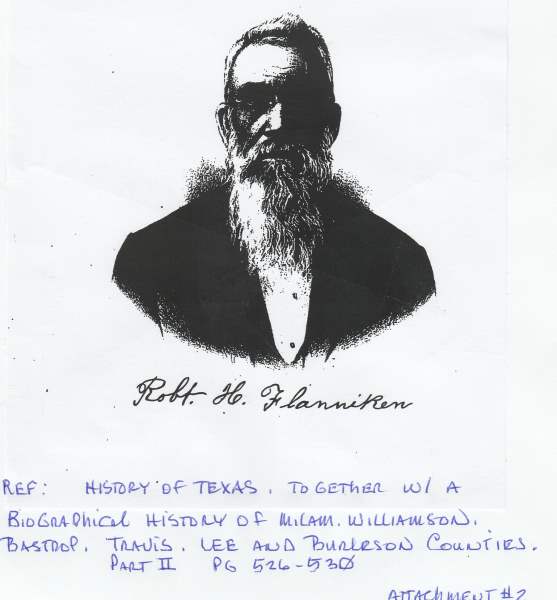 Robt. H. Flanniken
REF: HISTORY OF TEXAS, TOGETHER W/ A
BIOGRAPHICAL HISTORY OF MILAM, WILLIAMSON,
BASTROP, TRAVIS, LEE AND BURLESON COUNTIES.
PART II PG 526-530
ATTACHMENT #2